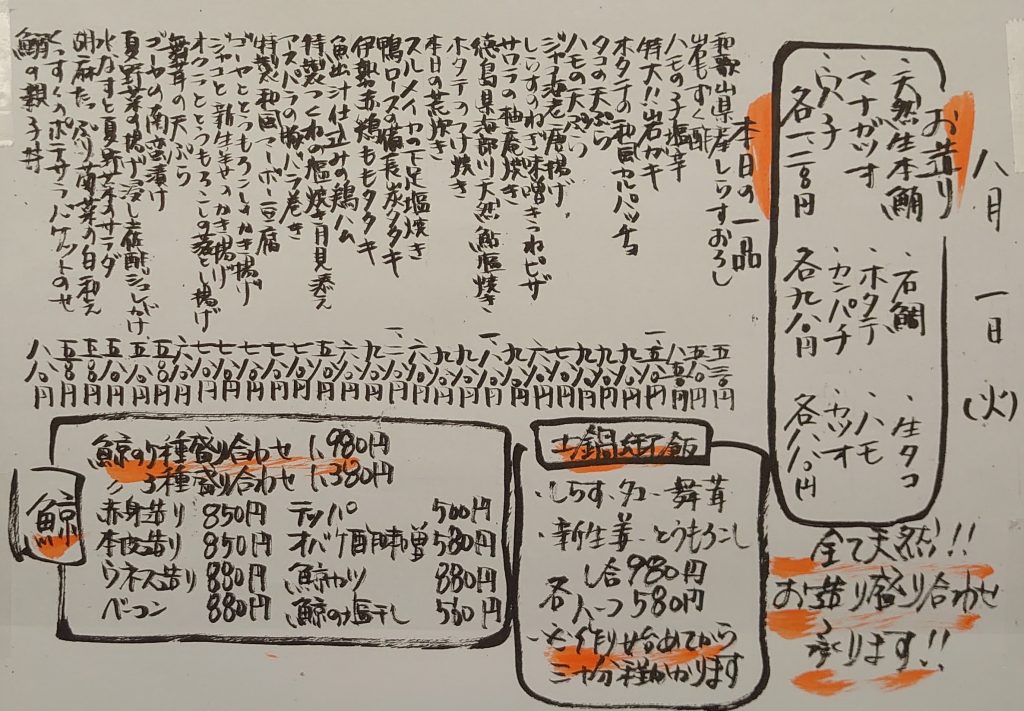 八月 一日 (火)
お造り
・天然生本鮪
・マナガツオ
・穴子
各一、二八〇円
・石鯛
・ホタテ
・カンパチ
各九八〇円
・生タコ
・ハモ
・カツオ
各八八〇円
全て天然!!
お造り盛り合わせ
承ります!!
本日の一品
和歌山県産しらすおろし 五三〇円
岩もずく酢 五八〇円
ハモの子塩辛
特大!!岩ガキ
ホタテの和風カルパッチョ 九八〇円
タコの天ぷら 九八〇円
ハモの天ぷら 九八〇円
ジャコ海老唐揚げ 七八〇円
しらすのねぎ味噌きつねピザ 六八〇円
サワラの柚庵焼き 九八〇円
徳島県海部川天然鮎塩焼き
ホタテのつけ焼き 九八〇円
本日の荒炊き
スルメイカの下足塩焼き 六八〇円
鴨ロースの備長炭タタキ
伊勢赤鶏ももタタキ 九八〇円
魚出汁仕立みの鶏ハム 六八〇円
特製つくねの塩焼き月見添え 五八〇円
アスパラの豚バラ巻き
特製和風マーボー豆腐
ゴーヤととうもろこしのかき揚げ
ジャコと新生姜のかき揚げ
オクラととうもろこしの落とし揚げ 七八〇円
舞茸の天ぷら 六八〇円
ゴーヤの南蛮漬け 五八〇円
夏野菜の揚げ浸し土佐酢ジュレがけ
水なすと夏野菜のサラダ
胡麻たっぷり菊菜の白和え
くんすくのポテサラバケットのせ
鯛の親子丼 八八〇円
土鍋御飯
・しらす・タコ・舞茸
・新生姜・とうもろこし
各 一合980円
一人一つ580円
※作り始めてから
三十分程かかります
鯨
鯨の5種盛り合わせ 1,980円
〃 3種盛り合わせ 1,380円
赤身造り 850円 テッパ 500円
本皮造り 850円 オバケ酢味噌 580円
ウネス造り 880円 鯨カツ 880円
ベーコン 880円 鯨の塩干し 560円